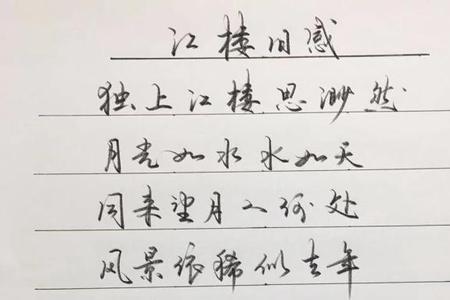 江楼旧感
独上江楼思渺然
月光如水水如天
同来望月人何处
风景依稀似去年